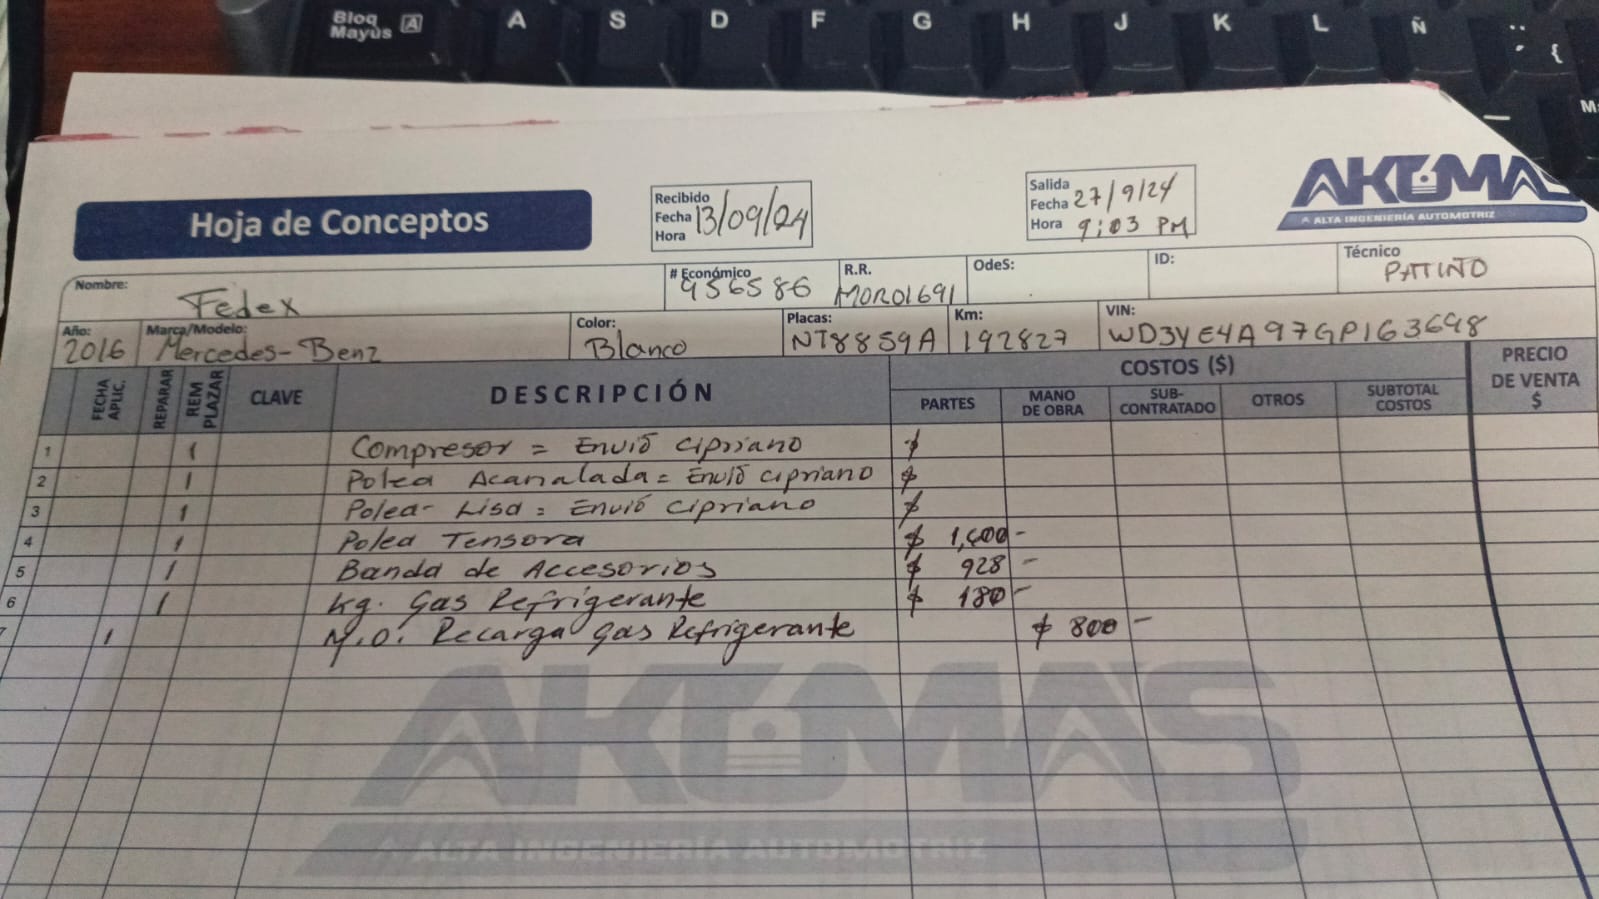 Bloq Mayús A
A S D F G H J K L Ñ
{
M
AKOMA
ALTA INGENIERÍA AUTOMOTRIZ
Hoja de Conceptos
Recibido
Fecha 13/09/24
Hora
Salida
Fecha 27/9/24
Hora 9:03 PM
Nombre: Fedex
# Económico 956586
R.R. MOR01691
OdeS:
ID:
Técnico PATIÑO
Año: 2016
Marca/Modelo: Mercedes-Benz
Color: Blanco
Placas: NT8859A
Km: 192827
VIN: WD3YE4A97GP163698
FECHA APLIC. REPARAR REM PLAZAR CLAVE DESCRIPCIÓN COSTOS ($) PRECIO DE VENTA $
PARTES MANO DE OBRA SUB-CONTRATADO OTROS SUBTOTAL COSTOS
1 1 Compresor = Envió Cipriano $
2 1 Polea Acanalada = Envió Cipriano $
3 1 Polea- Lisa = Envió Cipriano $
4 1 Polea Tensora $
5 1 Banda de Accesorios $ 928-
6 1 Kg. Gas Refrigerante $ 180-
7 1 M.O. Recarga gas Refrigerante $ 800-
AKOMA'S
ALTA INGENIERÍA AUTOMOTRIZ